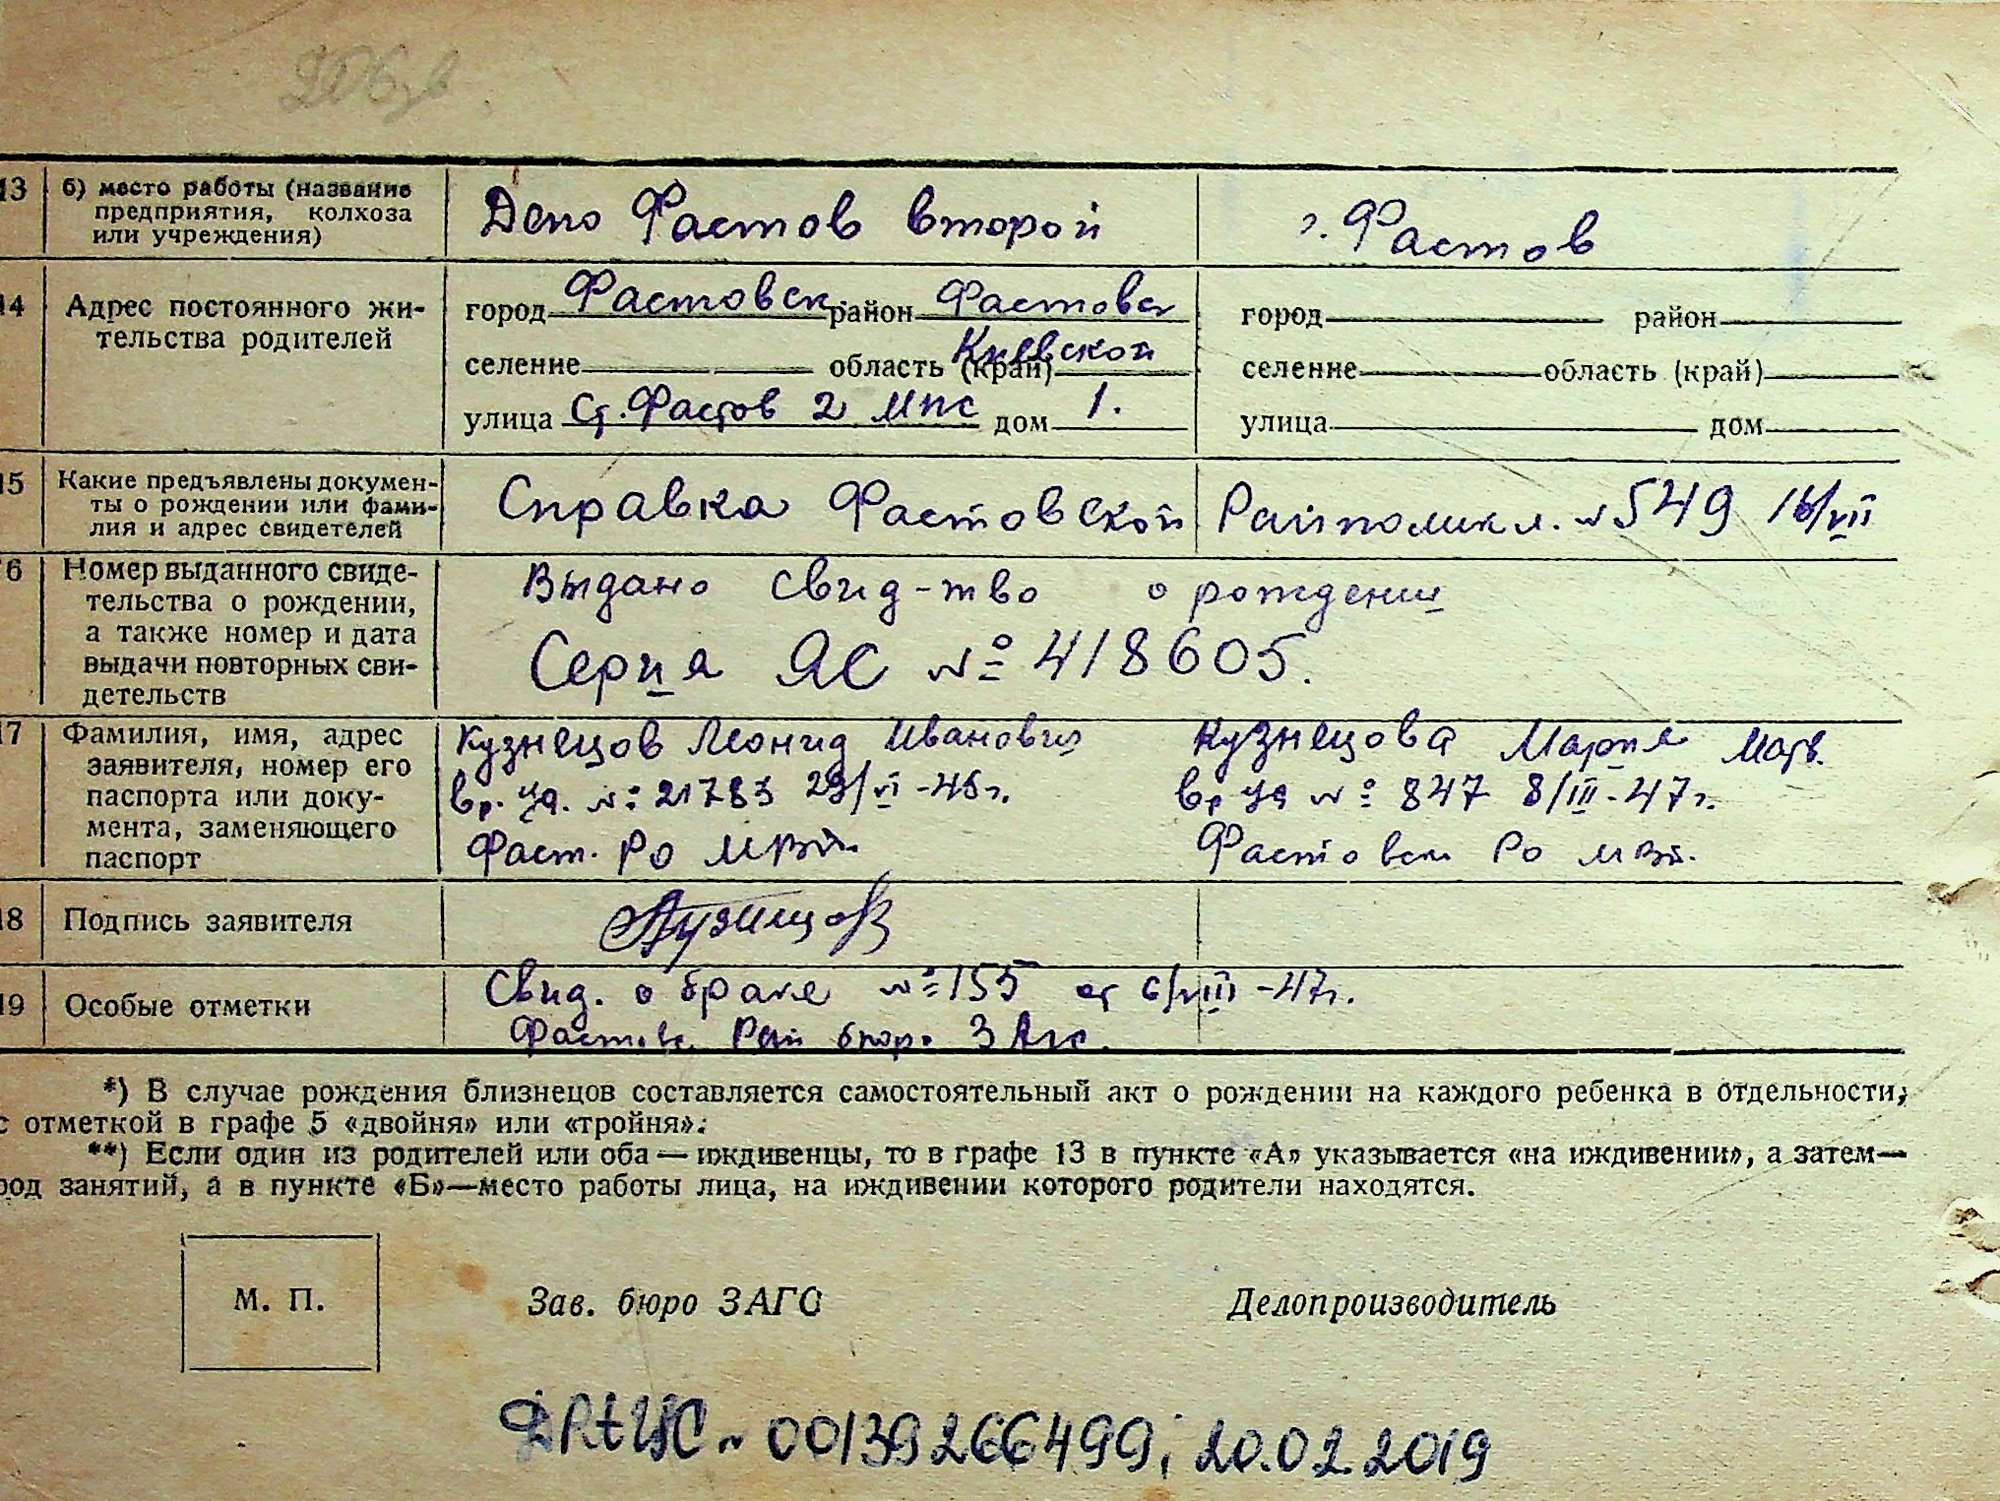 13 б) место работы (название предприятия, колхоза или учреждения) Депо Фастов второй г. Фастов
14 Адрес постоянного жительства родителей
город Фастовск район Фастовск город район
селение область (край) Киевской селение область (край)
улица Ст. Фастов 2 МПС дом 1. улица дом
15 Какие предъявлены документы о рождении или фамилия и адрес свидетелей Справка Фастовской Райполикл. № 549 16/VII
16 Номер выданного свидетельства о рождении, а также номер и дата выдачи повторных свидетельств
Выдано свид-тво о рождении
Серия ЯС № 418605.
17 Фамилия, имя, адрес заявителя, номер его паспорта или документа, заменяющего паспорт
Кузнецов Леонид Иванович Кузнецова Мария
вр. уд. № 21783 29/VI-46г. вр уд № 847 8/III-47г.
Фаст. РО МВД. Фастовск РО МВД.
18 Подпись заявителя Кузнецов
19 Особые отметки Свид. о браке № 155 от 6/VIII-47г.
Фастовс. Рай бюро Загс.
*) В случае рождения близнецов составляется самостоятельный акт о рождении на каждого ребенка в отдельности,
с отметкой в графе 5 «двойня» или «тройня».
**) Если один из родителей или оба — иждивенцы, то в графе 13 в пункте «А» указывается «на иждивении», а затем—
род занятий, а в пункте «Б»—место работы лица, на иждивении которого родители находятся.
М. П. Зав. бюро ЗАГС Делопроизводитель
00139266499, 20.02.2019